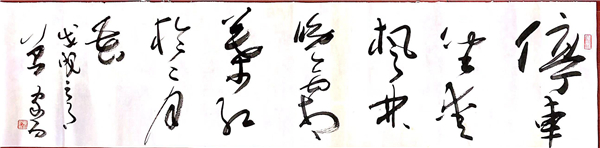 停車
坐愛
楓林
晚霜
葉紅
於二月
花
戊戌之